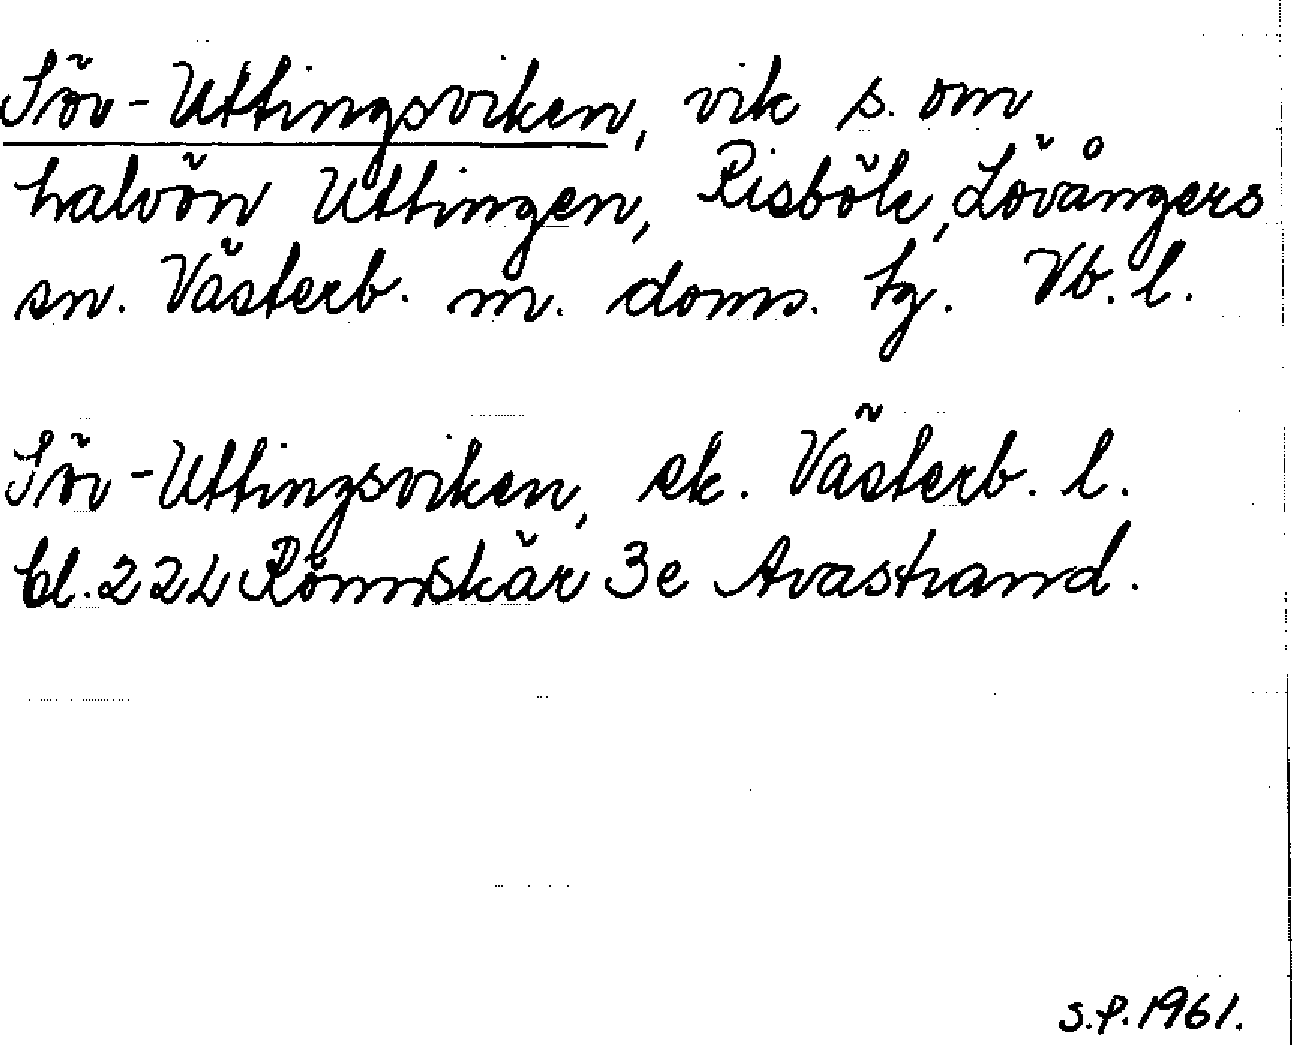 Söv-Uttingsviken, vik s. om
halvön Uttingen, Risböle, Lövångers
sn. Västerb. m. doms. tg. Vb. l.
Söv-Uttingsviken, ek. Västerb. l.
bl. 22L Rönnskär 3e Avastrand.
S.P. 1961.